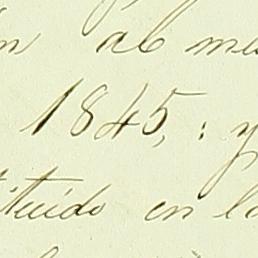 n al me
1845,: y
tituido en la